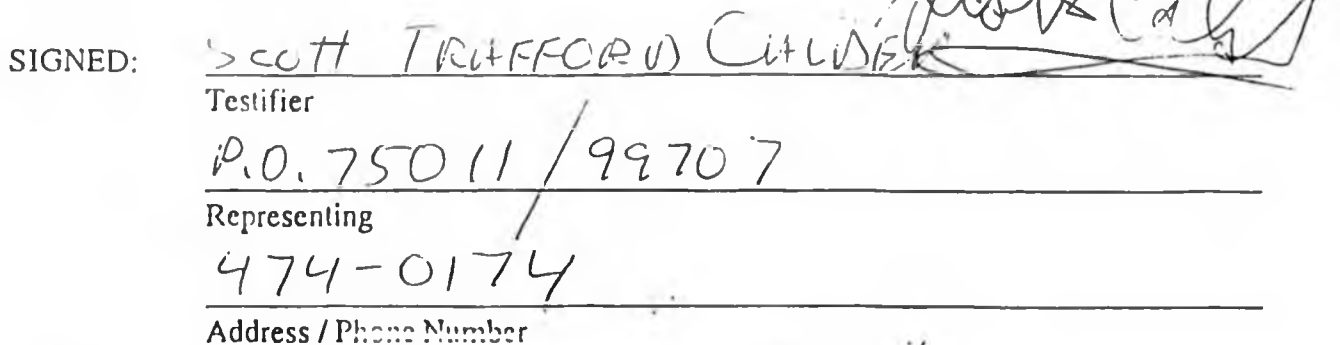 SIGNED: Scott TRAFFORD
Testifier
P.O. 75011 / 99707
Representing
474-0174
Address / Phone Number